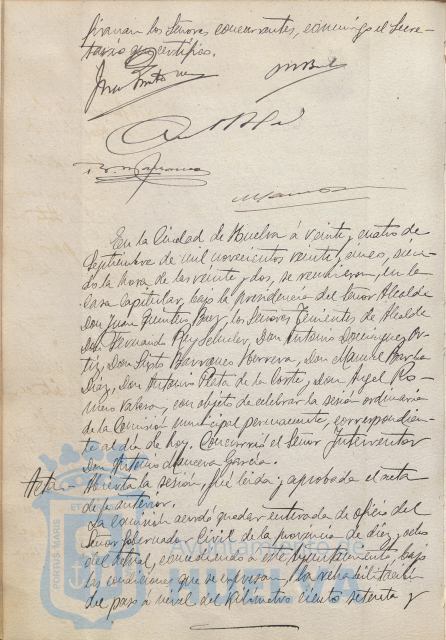 firman los Señores concurrentes, conmigo el Secre-
tario que certifico.
En la Ciudad de Huelva á veinte y cuatro de
Septiembre de mil novecientos veinte y cinco, sien-
do la hora de las veinte y dos, se reunieron, en la
Casa Capitular, bajo la presidencia del Señor Alcalde
Don Juan Quintero Baez, los Señores Tenientes de Alcalde
Don Fernando Rey Don Antonio Domínguez Or-
tiz, Don Sixto Barranco Borrero, Don Manuel
Díaz, Don Antonio Plata de la Corte, Don Angel Ro-
mero con objeto de celebrar la sesión ordinaria
de la Comisión municipal permanente, correspondien-
te al día de hoy. Concurrió el Señor Interventor
Don Antonio García.
Acta
Abierta la sesión, fué leida y aprobada el acta
de la anterior.
La Comisión acordó quedar enterada de oficio del
Señor Gobernador Civil de la provincia de diez y ocho
del actual, concediendo á este Ayuntamiento bajo
las condiciones que se expresan, la rehabilitación
del paso á nivel del kilómetro ciento setenta y
PORTUS MARIS
ET
Ayuntamiento de
HUELVA